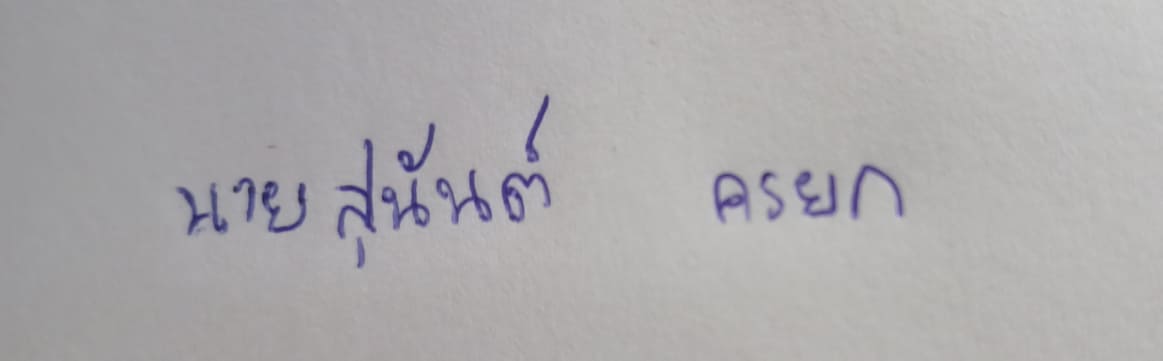 นาย สุนันต์ ครยก